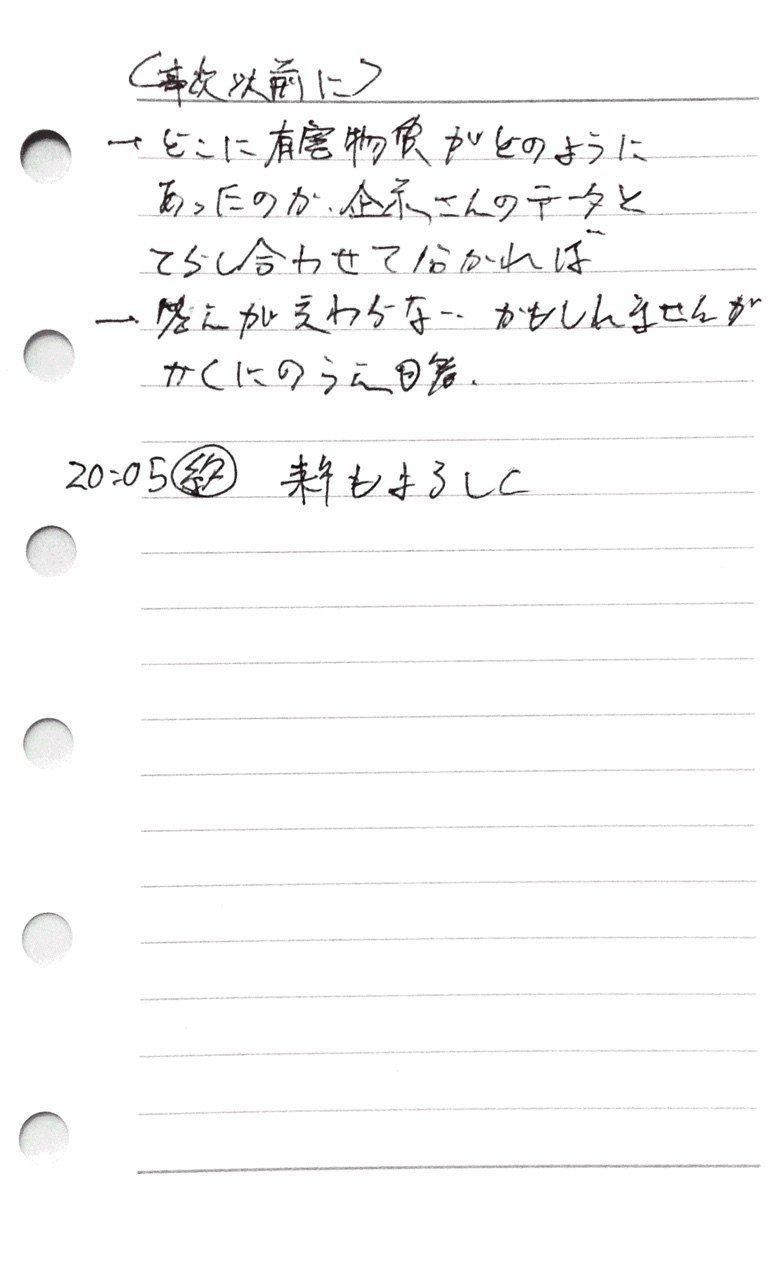 (事故以前に)
→ どこに有害物質がどのように
あったのか、企業さんのデータと
てらし合わせて分かれば
→ 答えが変わらない かもしれませんが
かくにんのうえ回答.
20:05 ㊡ 来年もよろしく